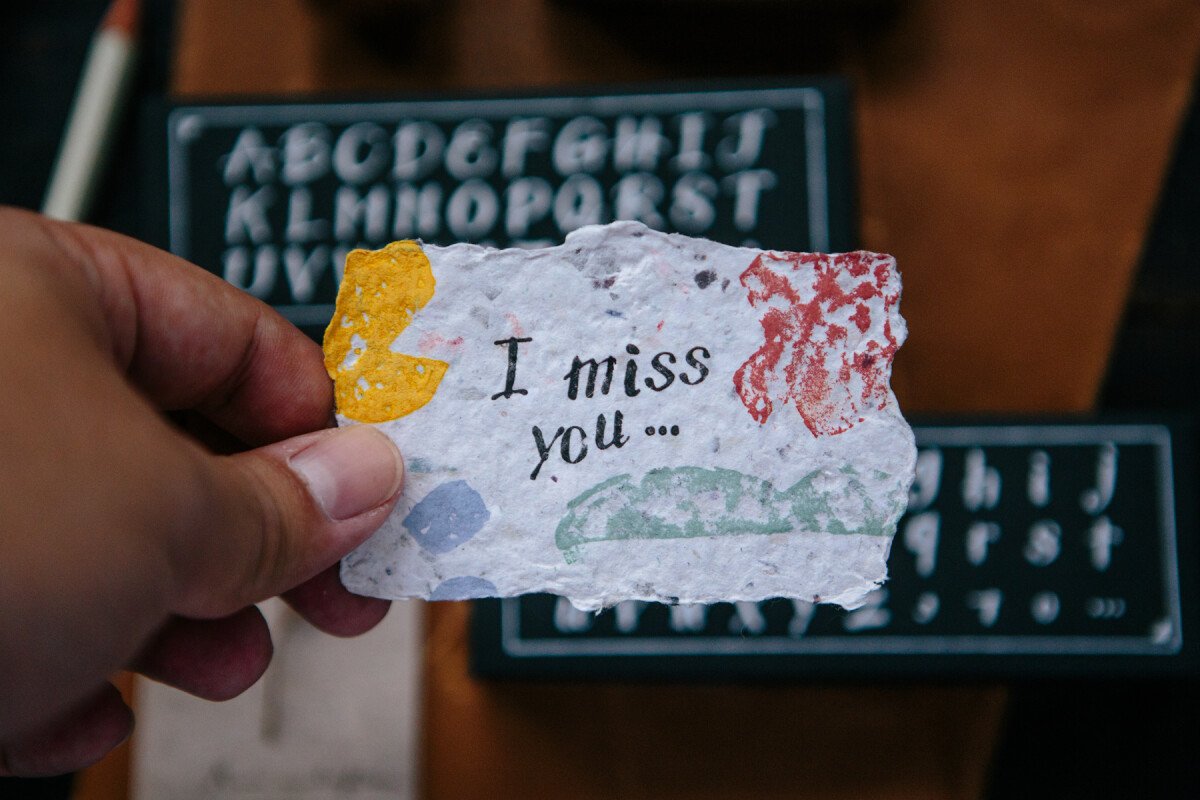 ABCDEFGHIJ
KLMNOPQRST
UV
I miss
you...
g h i j
q r s t